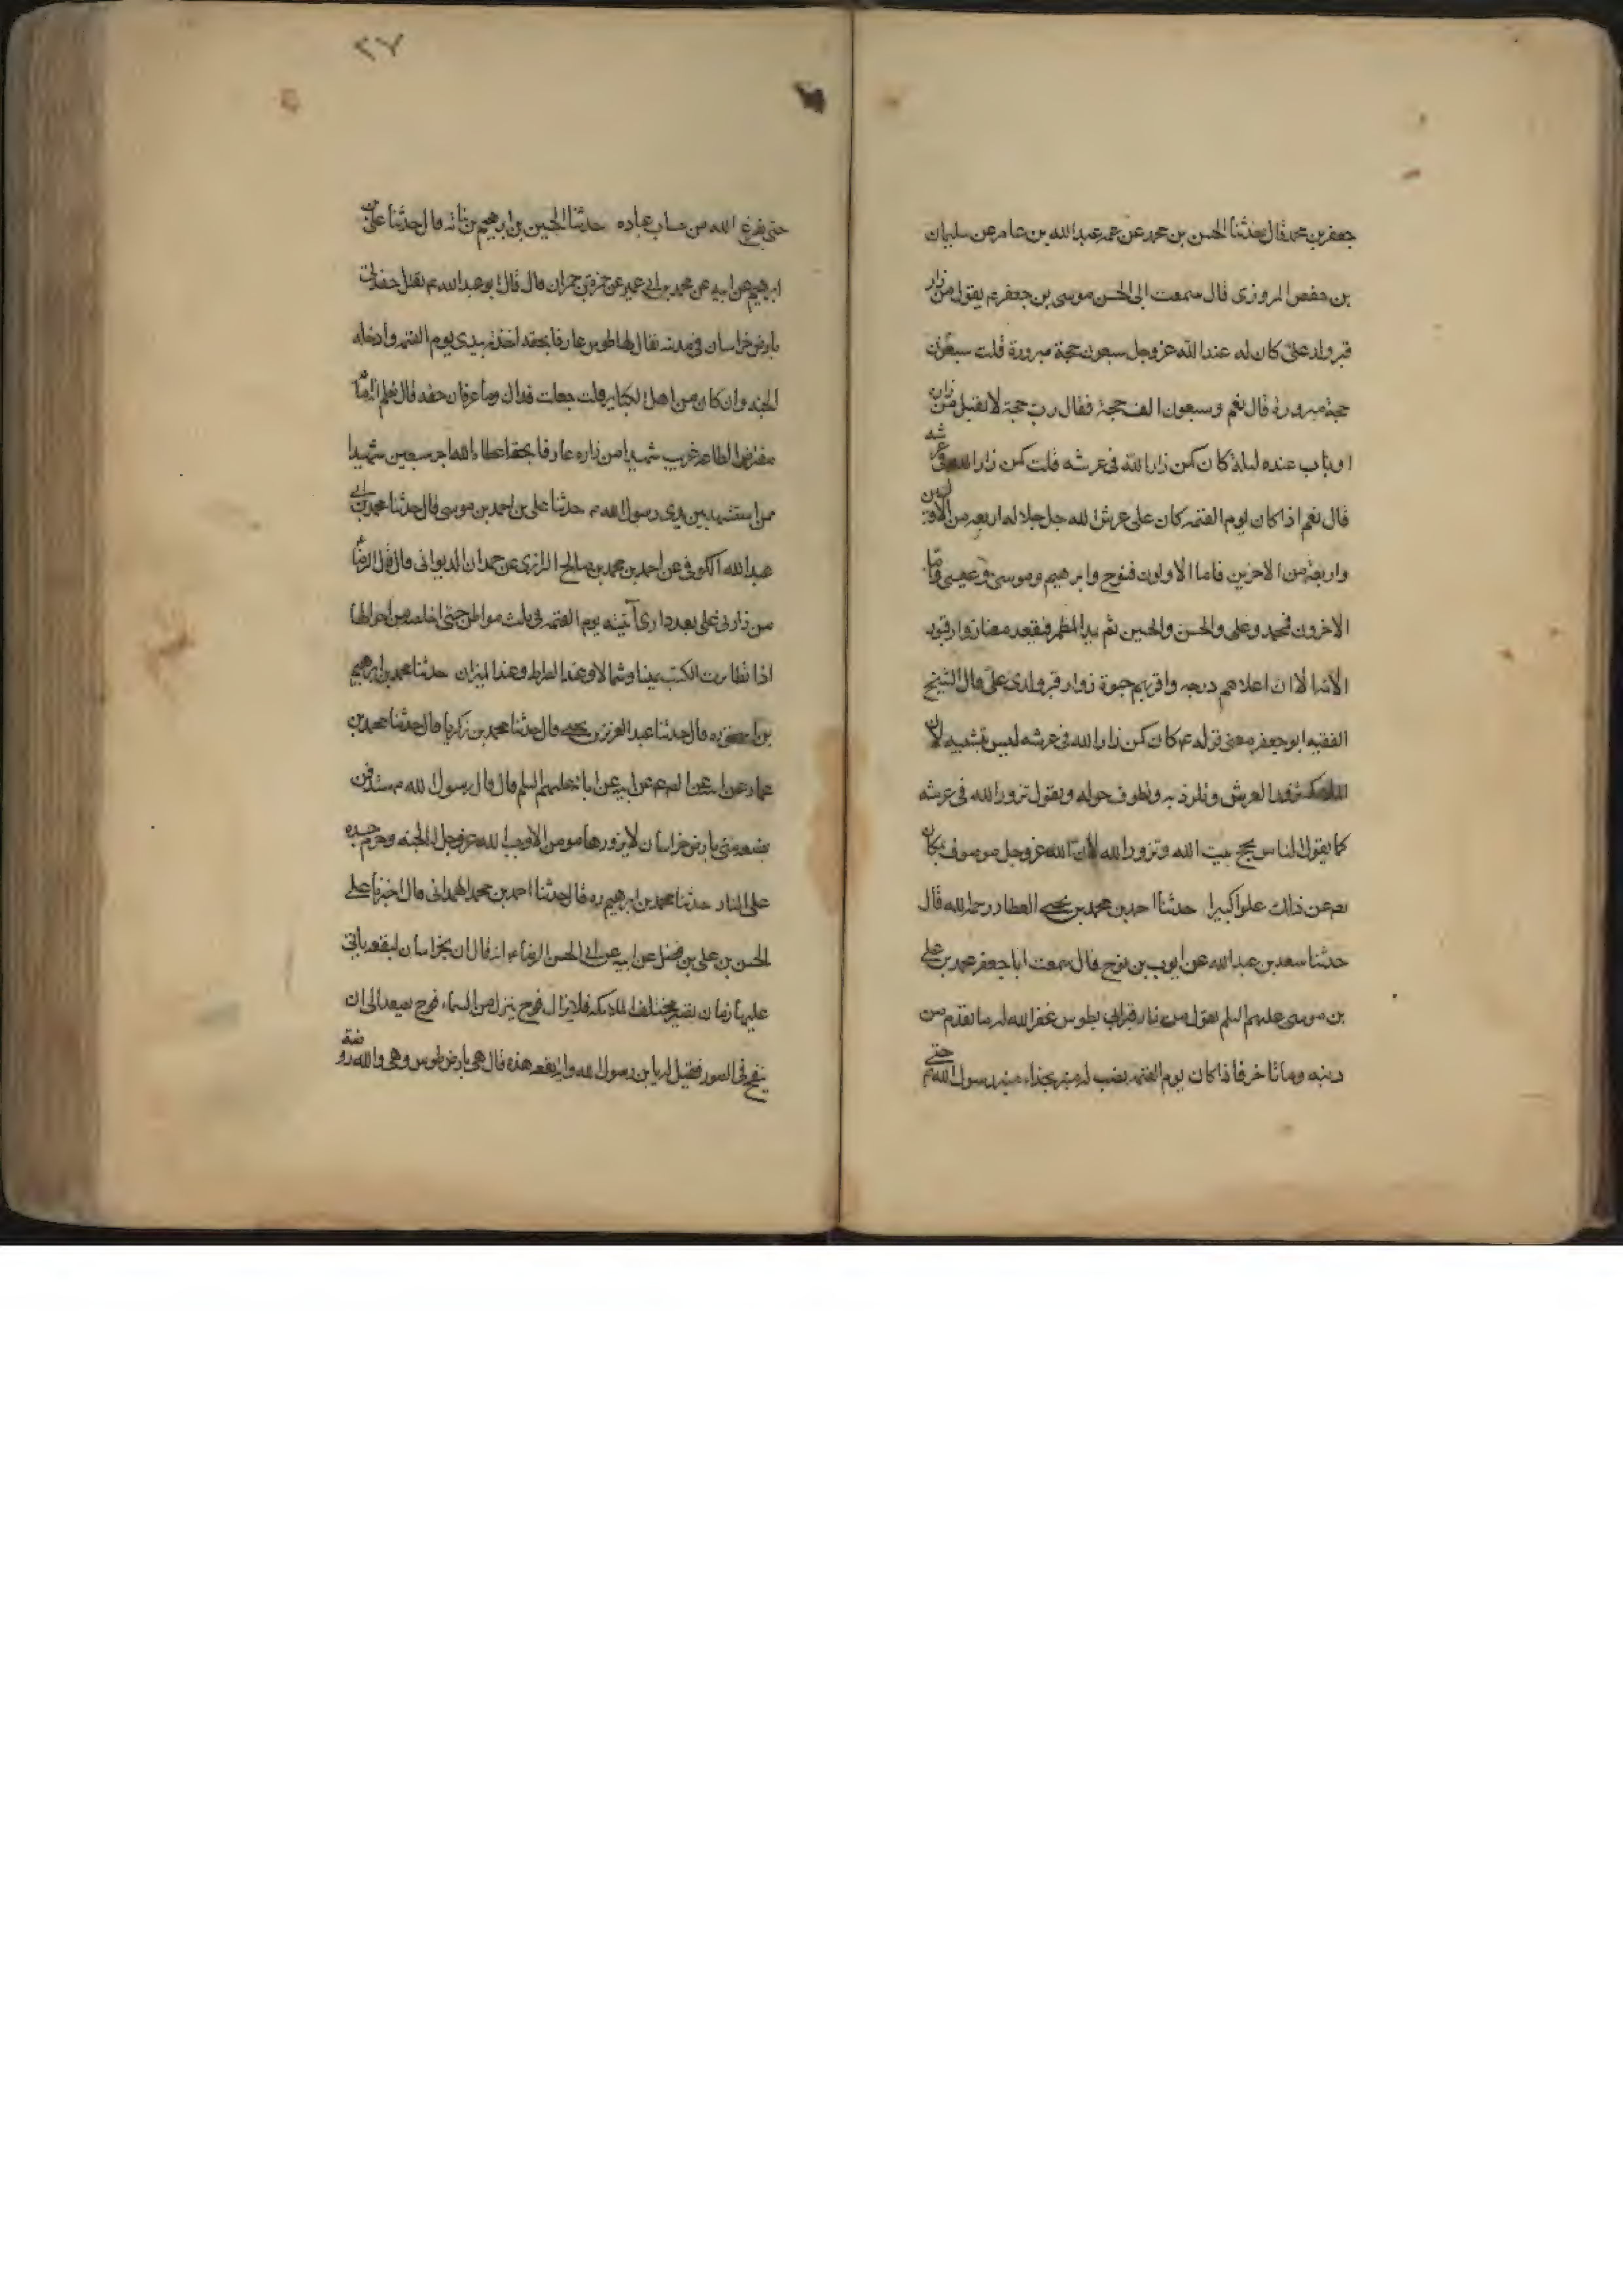 جعفر بن محمد قال حدثنا الحسن بن محمد عن عمه عبدالله بن عامر عن سليمان
بن حفص المروزى قال سمعت ابى الحسن موسى بن جعفر ع يقول من زار
قبر ولد على كان له عند الله عز وجل سبعون حجة مبرورة قلت سبعون
حجة مبرورة قال نعم وسبعون الف حجة فقال رب حجة لا تقبل من زاره
او بات عنده ليلة كان كمن زار الله فى عرشه قلت كمن زار الله فى عرشه
قال نعم اذا كان يوم القيمه كان على عرش الله جل جلاله اربعه من الاولين
واربعة من الاخرين فاما الاولون فنوح وابرهيم وموسى وعيسى واما
الاخرون فمحمد وعلى والحسن والحسين ثم يمد المطمر فيقعد معنا زوار قبور
الائمة الا ان اعلاهم درجه واقربهم حبوة زوار قبر ولدى على قال الشيخ
الفقيه ابو جعفر معنى قوله ع كان كمن زار الله فى عرشه ليس بتشبيه لان
الملائكة تزور العرش وتلوذ به وتطوف حوله وتقول تزور الله فى عرشه
كما يقول الناس يحج بيت الله وتزور الله لان الله عز وجل موصوف بمكان
تع عن ذلك علوا كبيرا حدثنا احمد بن محمد بن يحيى العطار رحمه الله قال
حدثنا سعد بن عبد الله عن ايوب بن نوح قال سمعت ابا جعفر محمد بن على
بن موسى عليهم السلم يقول من زار قبر ابى بطوس غفر الله له ما تقدم من
ذنبه وما تاخر فاذا كان يوم القيمه نصب له منبر بحذاء منبر رسول الله ص حتى
حتى يفرغ الله من حساب عباده حدثنا الحسين بن ابرهيم بن ناتانه قال حدثنا على بن
ابرهيم عن ابيه عن محمد بن ابى عمير عن حمزة بن حمران قال قال ابو عبد الله ع تقتل حفدتى
بارض خراسان فى مدينه يقال لها طوس عارفا بحقه اخذته بيدى يوم القيمه وادخله
الجنه وان كان من اهل الكباير قلت جعلت فداك وما عرفان حقه قال تعلم انه امام
مفترض الطاعه غريب شهيد من زاره عارفا بحقه اعطاه الله اجر سبعين شهيدا
ممن استشهد بين يدى رسول الله ص حدثنا على بن احمد بن موسى قال حدثنا محمد بن ابى
عبد الله الكوفى عن احمد بن محمد بن صالح الرازى عن حمدان الديوانى قال قال الرضا ع
من زارنى على بعد دارى آتيته يوم القيمه فى ثلث مواطن حتى اخلصه من اهوالها
اذا تطايرت الكتب يمينا وشمالا وعند الصراط وعند الميزان حدثنا محمد بن ابرهيم
بن اسحق ره قال حدثنا عبد العزيز بن يحيى قال حدثنا محمد بن زكريا قال حدثنا محمد بن
عماره عن ابيه عن الصـ ع عن ابيه عن ابائه عليهم السلم قال قال رسول الله ص ستدفن
بضعه منى بارض خراسان لا يزورها مومن الا اوجب الله عز وجل له الجنه وحرم جسده
على النار حدثنا محمد بن ابرهيم ره قال حدثنا احمد بن محمد الهمدانى قال اخبرنا على
الحسن بن على بن فضل عن ابيه عن ابى الحسن الرضا ع انه قال ان بخراسان لبقعه ياتى
عليها زمان تصير مختلف الملائكه فلا يزال فوج ينزل من السماء وفوج يصعد الى ان
ينفخ فى الصور فقيل له يا بن رسول الله واى بقعه هذه قال هى بارض طوس وهى والله روضة
٢٧